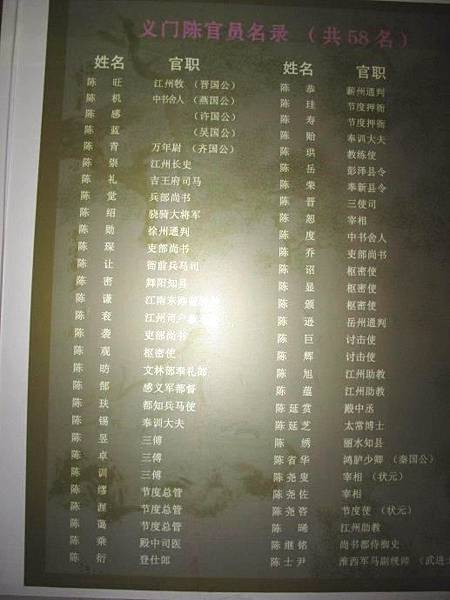 义门陈官员名录 （共58名）
姓名 官职
陈 旺 江州牧（晋国公）
陈 机 中书舍人（燕国公）
陈 感 （许国公）
陈 蓝 （吴国公）
陈 青 万年尉（齐国公）
陈 崇 江州长史
陈 礼 吉王府司马
陈 觉 兵部尚书
陈 绍 骁骑大将军
陈 勋 徐州通判
陈 琛 吏部尚书
陈 让 衙前兵马司
陈 密 舞阳知县
陈 谦 江南东路
陈 衮 江州司户
陈 袭 吏部尚书
陈 观 枢密使
陈 昉 文林郎奉礼郎
陈 郜 感义军都督
陈 玞 都知兵马使
陈 锡 奉训大夫
陈 昱 三傅
陈 卓 三傅
陈 训 三傅
陈 缪 节度总管
陈 渥 节度总管
陈 蔼 节度总管
陈 乘 殿中司医
陈 衍 登仕郎
姓名 官职
陈 恭 蕲州通判
陈 珪 节度押衙
陈 寿 节度押衙
陈 贻 奉训大夫
陈 珙 教练使
陈 岳 彭泽县令
陈 荣 奉新县令
陈 晋 三使司
陈 恕 宰相
陈 度 中书舍人
陈 乔 吏部尚书
陈 诏 枢密使
陈 显 枢密使
陈 颁 枢密使
陈 逊 岳州通判
陈 巨 讨击使
陈 辉 讨击使
陈 旭 江州助教
陈 蕴 江州助教
陈延赏 殿中丞
陈延芝 太常博士
陈 绣 丽水知县
陈省华 鸿胪少卿（秦国公）
陈尧叟 宰相（状元）
陈尧佐 宰相
陈尧咨 节度使（状元）
陈 晞 江州助教
陈继铭 尚书都侍御史
陈士尹 淮西军马副统帅（武进士